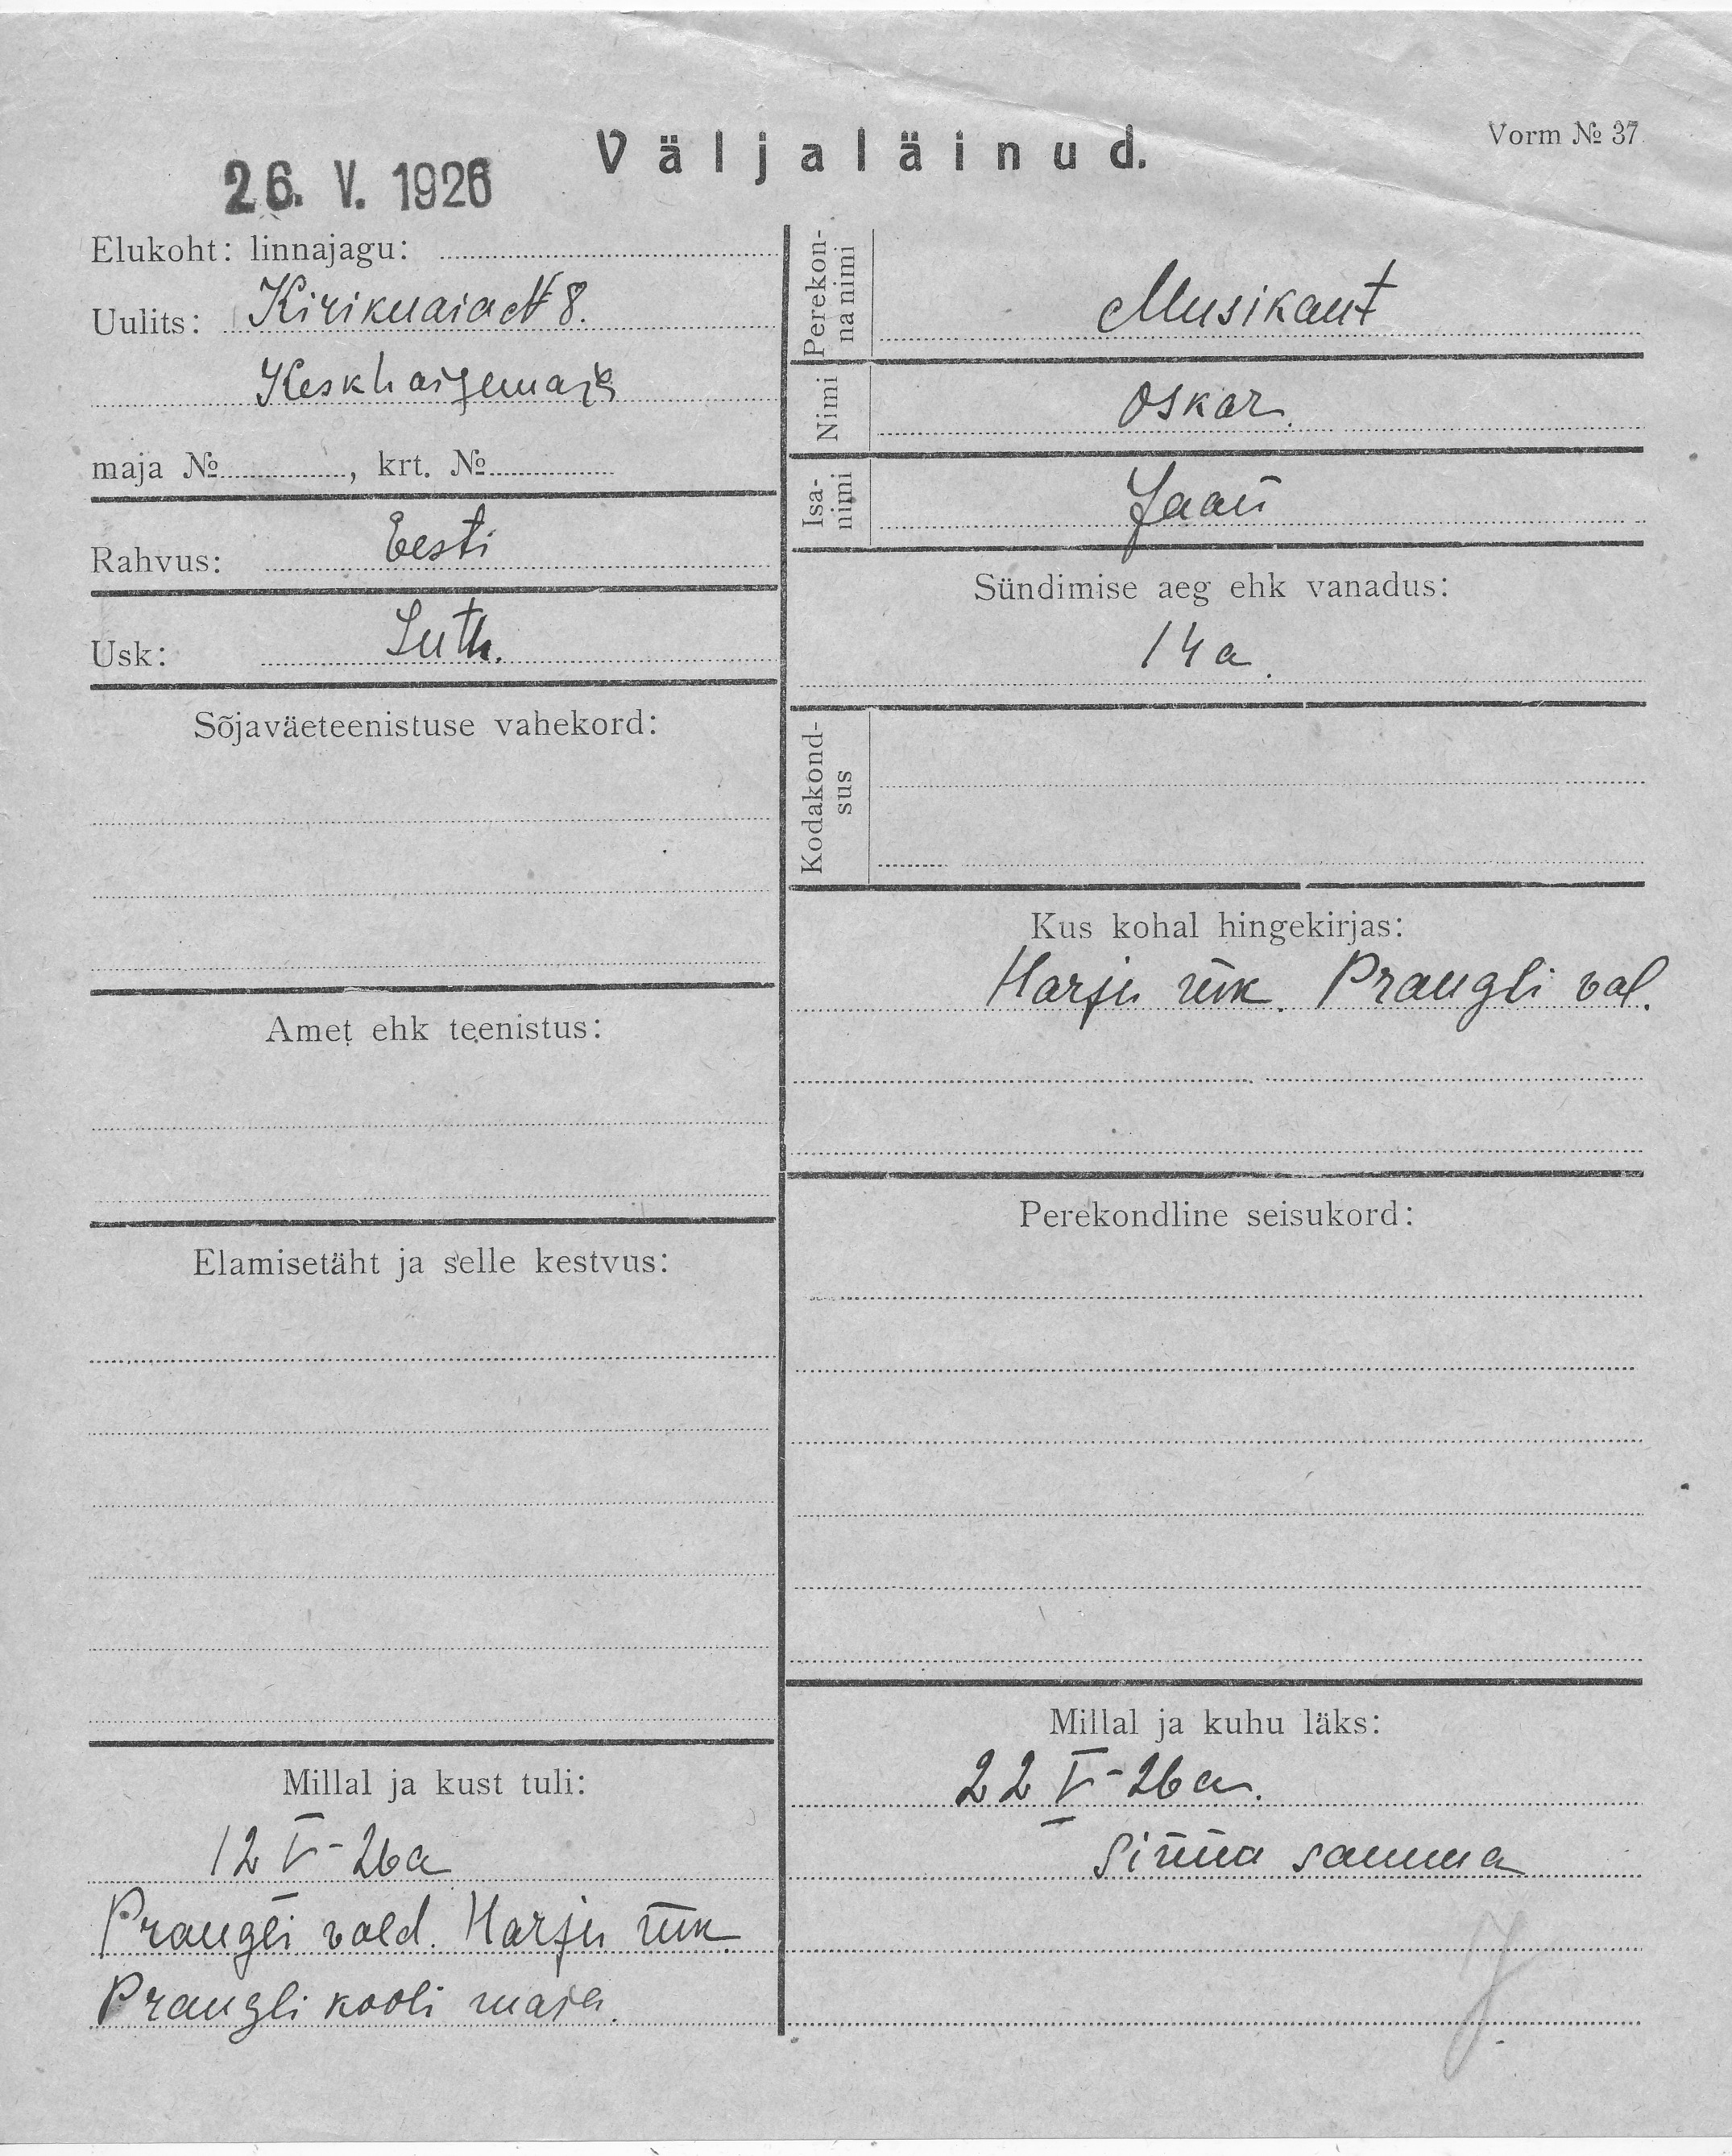 Väljaläinud.
Vorm № 37
26. V. 1926
Elukoht: linnajagu:
Uulits: Kirikuaia N 8.
Keskhaigemaja
maja № , krt. №
Rahvus: Eesti
Usk: Luth.
Sõjaväeteenistuse vahekord:
Amet ehk teenistus:
Elamisetäht ja selle kestvus:
Millal ja kust tuli:
12 V - 26 a
Prangli vald. Harju mk.
Prangli kooli maja.
Perekonna nimi Musikant
Nimi Oskar.
Isa-nimi Jaan
Sündimise aeg ehk vanadus:
14 a.
Kodakond-
sus
Kus kohal hingekirjas:
Harju mk. Prangli val.
Perekondline seisukord:
Millal ja kuhu läks:
22 V - 26 a.
Sinna samma